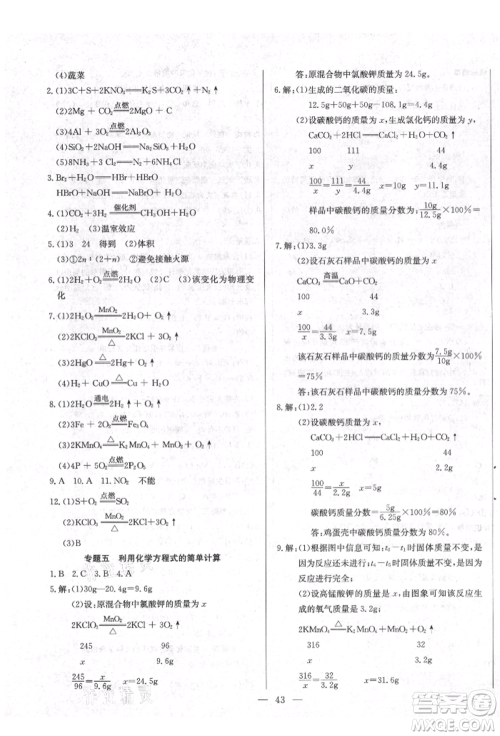 (4)蔬菜
2.(1)3C+S+2KNO₃ 点燃 K₂S+N₂↑+3CO₂↑
(2)2Mg + CO₂ 点燃 2MgO + C
(3)4Al + 3O₂ 2Al₂O₃
(4)SiO₂ + 2NaOH Na₂SiO₃ + H₂O
(5)8NH₃ + 3Cl₂ 6NH₄Cl + N₂
3.Br₂+H₂O HBr+HBrO
HBrO+NaOH NaBrO+H₂O
4.(1) 催化剂
(2)H₂ (3)温室效应
5.(1)3 24 得到 (2)体积
(3)①2n : (2+n) ②避免接触火源
6.(1)2H₂ + O₂ 点燃 2H₂O (2)③ 该变化为物理变
化
7.(1)2KClO₃ MnO₂ △ 2KCl + 3O₂↑
(2)2KClO₃ MnO₂ △ 2KCl + 3O₂↑
(3)2HgO △ 2Hg + O₂↑
(4)H₂ + CuO △ Cu + H₂O
8.(1)2H₂O 通电 2H₂↑ + O₂↑
(2)3Fe + 2O₂ 点燃 Fe₃O₄
(3)2KMnO₄ △ K₂MnO₄ + MnO₂ + O₂↑
(4)4P + 5O₂ 点燃 2P₂O₅
9.A 10.A 11.NO₂ 不能
12.(1)S+O₂ 点燃 SO₂
(2)2KClO₃ MnO₂ △ 2KCl+3O₂↑
(3)B
专题五 利用化学方程式的简单计算
1.B 2.B 3.B 4.A
5.解:(1)30g-20.4g=9.6g
(2)设:原混合物中氯酸钾的质量为 x
2KClO₃ MnO₂ △ 2KCl+3O₂↑
245 96
x 9.6g
245/x = 96/9.6g x=24.5g
答:原混合物中氯酸钾质量为 24.5g。
6.解:(1)生成的二氧化碳的质量:
12.5g+50g+50g-108.1g=4.4g
(2)设碳酸钙的质量为 x,生成氯化钙的质量为 y
CaCO₃+2HCl CaCl₂+H₂O+CO₂↑
100 111 44
x y 4.4g
100/x = 111/y = 44/4.4g x=10g y=11.1g
样品中碳酸钙的质量分数为: 10g/12.5g ×100%=
80.0%
7.解:(1)3.3g
(2)设石灰石样品中碳酸钙的质量为 x
CaCO₃ 高温 CaO+CO₂↑
100 44
x 3.3g
100/x = 44/3.3g x=7.5g
该石灰石样品中碳酸钙的质量分数为 7.5g/10g ×100%
=75%
答:该石灰石样品中碳酸钙的质量分数为75%。
8.解:(1)2.2
(2)设碳酸钙的质量为 x,
CaCO₃+2HCl CaCl₂+H₂O+CO₂↑
100 44
x 2.2g
100/44 = x/2.2g x=5g
碳酸钙质量分数= 5g/6.25g ×100%=80%
答:鸡蛋壳中碳酸钙的质量分数为 80%。
9.解:(1)根据图中信息可知t₀-t₁时固体质量不变是因为
反应还未开始;t₂-t₃时固体质量不变是因为
反应完全。
(2)设高锰酸钾的质量为 x,由图象可知该反应
生成的氧气质量为 3.2g;
2KMnO₄ △ K₂MnO₄+MnO₂+O₂↑
316 32
x 3.2g
316/x = 32/3.2g x=31.6g
43